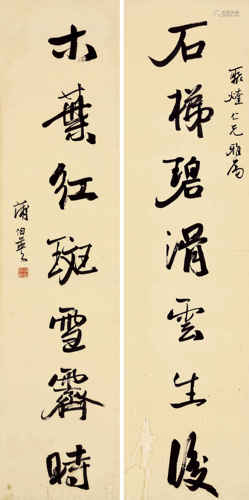 石梯碧滑雲生後
木葉紅斑雪霽時
仁兄雅屬
蒲伯英